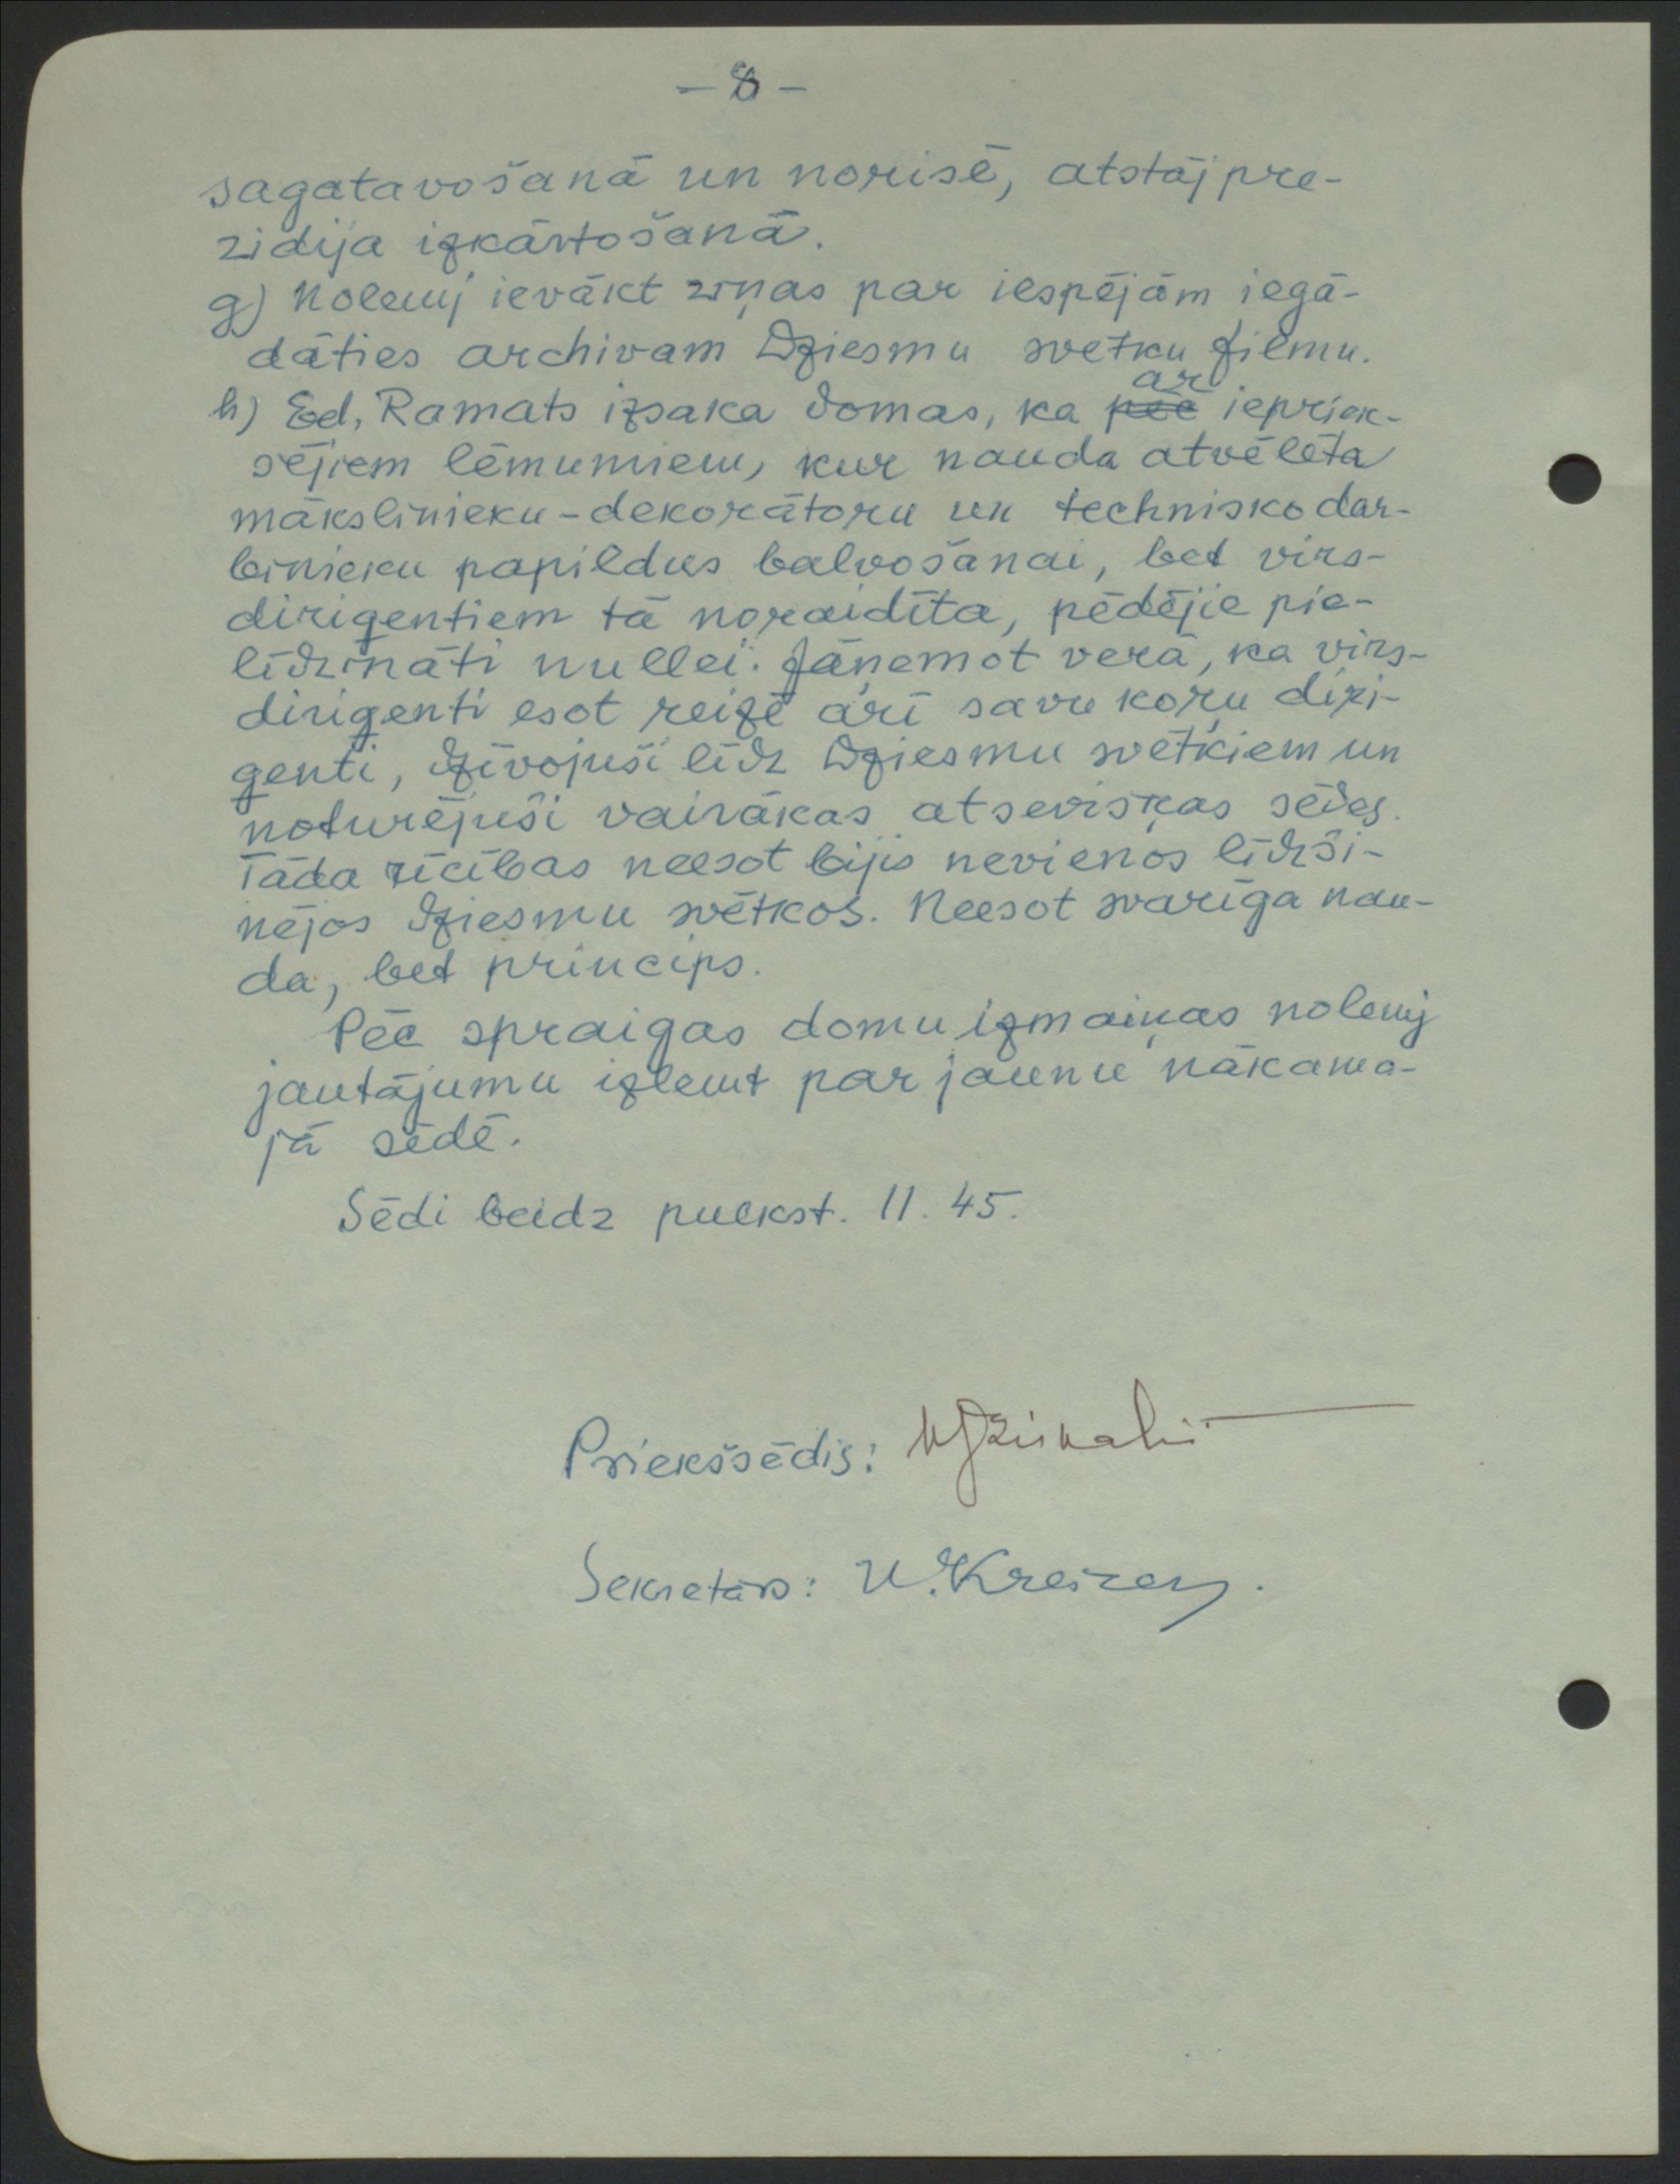 - 8 -
sagatavošanā un norisē, atstāj pre-
zidija izkārtošanā.
g) Nolemj ievākt ziņas par iespējām iegā-
dāties archivam Dziesmu svētku filmu.
ar
h) Ed. Ramats izsaka domas, ka pēc iepriek-
sējiem lēmumiem, kur nauda atvēlēta
mākslinieku-dekorātoru un technisko dar-
binieku papildus balvošanai, bet virs-
dirigentiem tā noraidīta, pēdējie pie-
līdzināti nullei. Jāņemot vērā, ka virs-
dirigenti esot reizē arī savu koŗu diri-
genti, dzīvojuši līdz Dziesmu svētkiem un
noturējuši vairākas atseviskas sēdes.
Tāda rīcības neesot bijis nevienos līdzši-
nējos dziesmu svētkos. Neesot svarīga nau-
da, bet princips.
Pēc spraigas domu izmaiņas nolemj
jautājumu izlemt par jaunu nākama-
jā sēdē.
Sēdi beidz pulkst. 11.45.
Priekšsēdis:
Sekretārs: